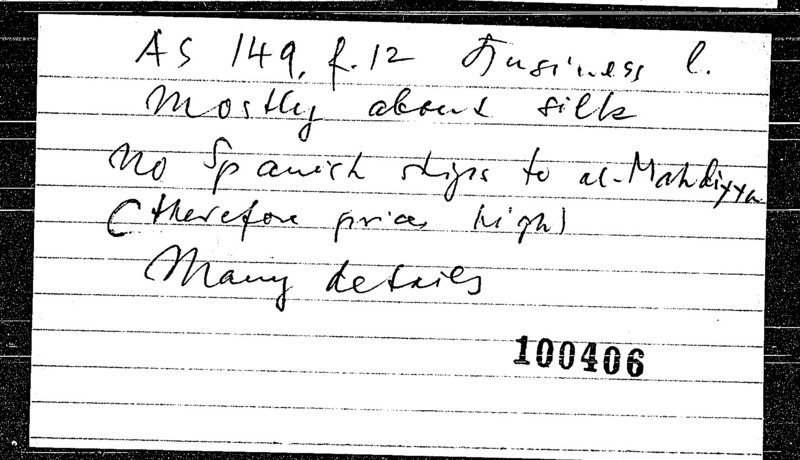 AS 149, f. 12 Business l.
Mostly about silk
No Spanish ships to al-Mahdiyya
(therefore prices high)
Many details
100406